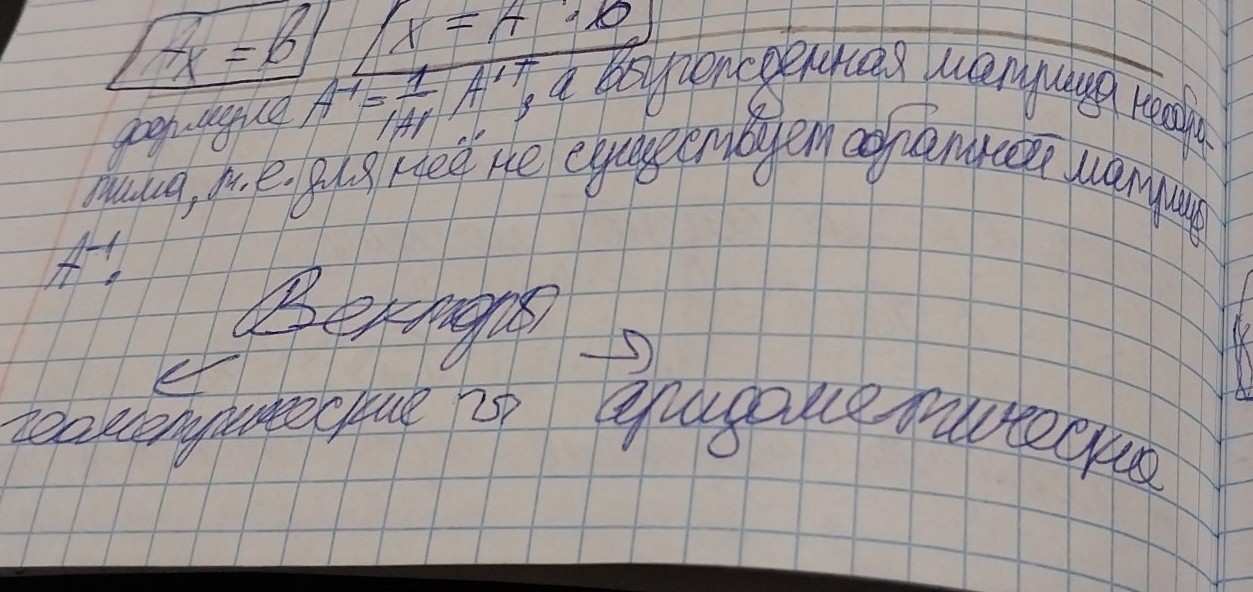 Ax = B x = A⁻¹ · B
формуле A⁻¹ = 1/|A| A'ᵀ, а вырожденная матрица необра-
тима, т.е. для неё не существует обратной матрицы
A⁻¹.
Векторы
← →
геометрические аридометические